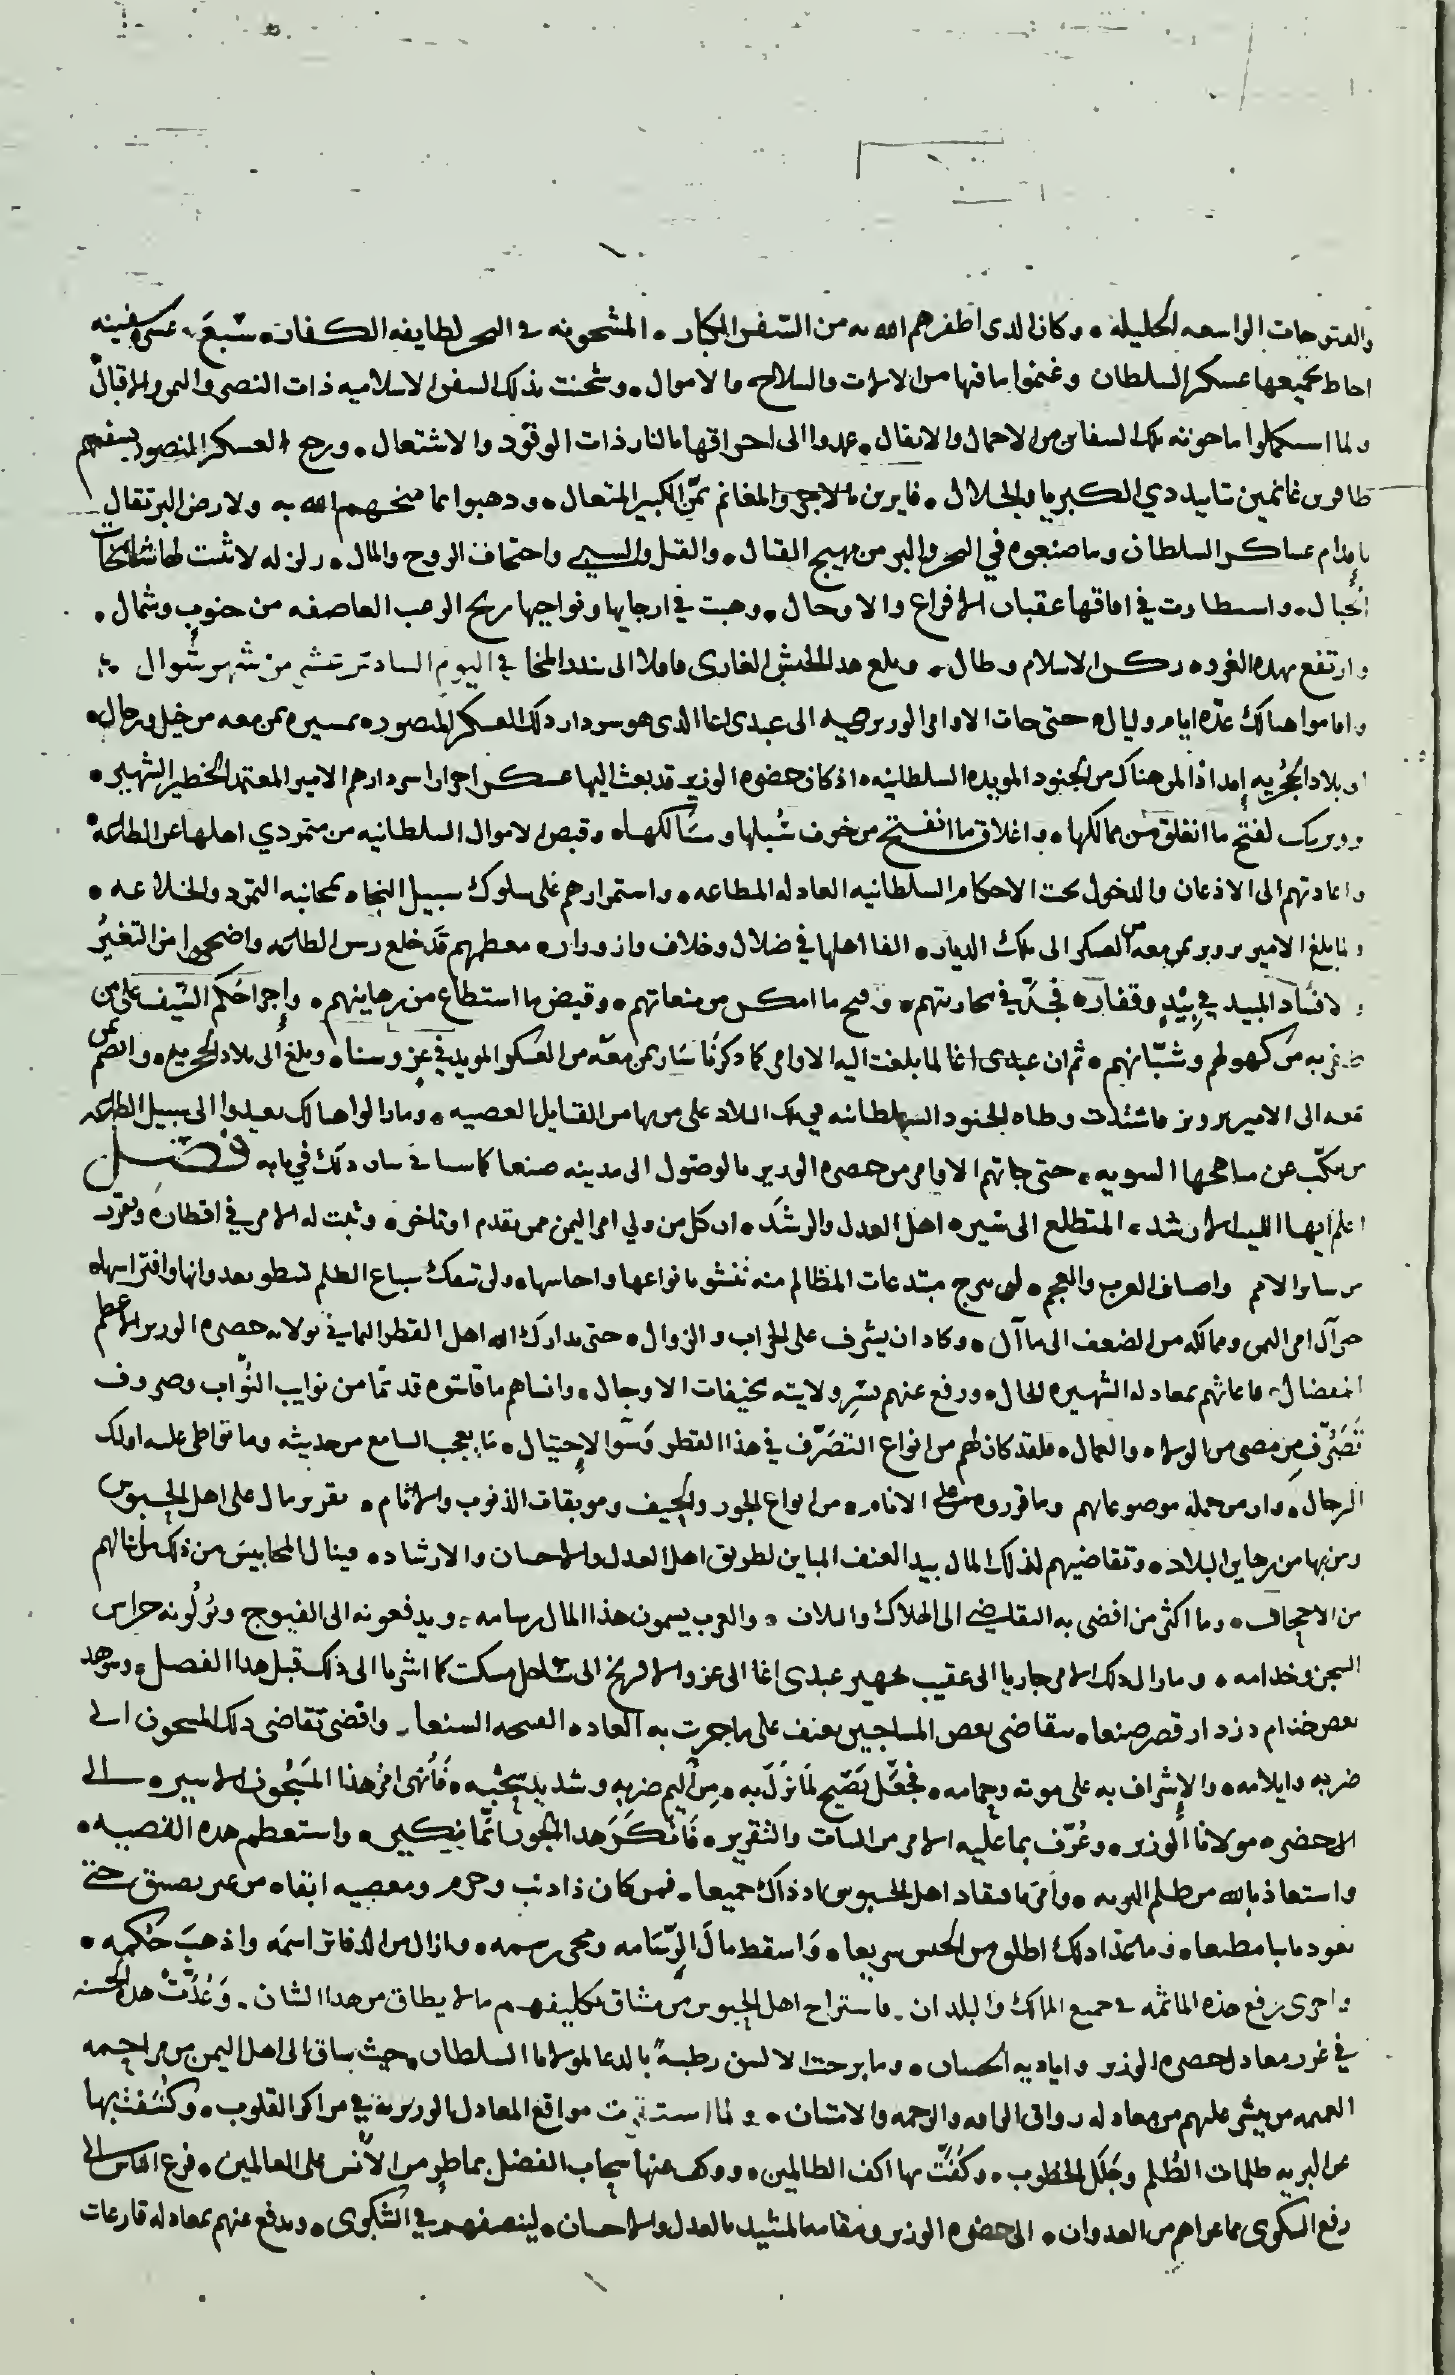 والفتوحات الواسعه الجليله، وكان الذى اظفرهم الله به من السفن الكبار، المشحونه فى البحر لطايفه الكفار، سبع عشره سفينه
احاط بجميعها عسكر السلطان وغنموا ما فيها من الالات والسلاح، والاموال، وشحنت بذلك السفن الاسلاميه ذات النصر واليمن والاقبال
ولما استكملوا ما حوته تلك السفاين من الاحمال والاثقال، عمدوا الى احراقها بالنار ذات الوقود والاشتعال، ورجع العسكر المنصور بسفنهم
ظافرين غانمين بتاييد ذي الكبريا والجلال، فايزين بالاجر والمغانم بمن الكبير المتعال، وذهبوا بما منحهم الله به ولارض البرتقال
باقدام عساكر السلطان وما صنعوه في البحر والبر من مهيج القتال، والقتل والسبى واختطاف الروح والمال، زلزله لا تثبت لها شامخات
الجبال، واستطارت في افاقها عقبان الافزاع والاوجال، وهبت في ارجايها ونواحيها ريح الرعب العاصفه من جنوب وشمال،
وارتفع بهذه الغزوه ركن الاسلام وطال، وبلغ هذا الجيش الغازى قافلا الى بندر المخا في اليوم السادس عشر من شهر شوال
واقاموا هنالك عدّه ايام وليال، حتى جات الاوامر الوزيريه الى عبدى اغا الذى هو سردار ذلك العسكر المنصوره بمسيره بمن معه من خيل ورجال،
الى بلاد الحُجريه إمدادا لمن هناك من الجنود المويده السلطانيه، اذ كان حضره الوزير قد بعث اليها عسكرا جرارا سردارهم الامير المعتمد الخطير الشهير،
برويز بيك لفتح ما انغلق من ممالكها، واغلاق ما انفتح من خوف سُبلها ومسَالكها، وقبض الاموال السلطانيه من متمردي اهلها عن الطاعه
واعادتهم الى الاذعان والدخول تحت الاحكام السلطانيه العادله المطاعه، واستمرارهم على سلوك سبيل النجاه بمجانبه التمرد والخلاعه،
ولما بلغ الامير برويز بمن معه من العسكر الى تلك الديار، الفا اهلها في ضلال وخلاف وازورار، معظمهم قد خلع رسن الطاعه واضحوا من التغيرُ
والافساد المبيد في بيْدٍ وقفار، فجدّ في محاربتهم، وفتح ما امكن من منعاتهم، وقبض ما استطاع من رهاينهم، وإجرا حكم السّيف على من
ظفر به من كهولهم وشبّانهم، ثم ان عبدى اغا لما بلغت اليه الاوامر كما ذكرنا سَار بمن معه من العسكر المويد في عز وسنا، وبلغ الى بلاد الحجريه، وانضم بمن
معه الى الامير برويز فاشتدت وطاه الجنود السلطانيه في تلك البلاد على من بها من القبايل العصيه، وما زالوا هنالك يعيدوا الى سبيل الطاعه
من نكّب عن مناهجها السويه، حتى جاتهم الاوامر من حضره الوزير بالوصول الى مدينه صنعا كما سياتى بيان ذلك في بابه فصل
اعلم ايها اللبيب الارشد، المتطلع الى سيره اهل العدل والرشَد، ان كل من ولي امر اليمن ممن تقدم او تاخر، وثبت له الامر في اقطاره وتقرر
من ساير الامم واصناف العرب والعجم، لم تبرح مبتدعات المظالم منه تفشو بانواعها واجناسها، ولن تنفك سباع الظلم تسطو بعدوانها وافتراسها،
حتى آل امر اليمن وممالكه من الضعف الى ما آل، وكاد ان يشرف على الخراب والزوال، حتى تدارك الله اهل القطر اليمانى بولايه حضره الوزير الاعظم
المفضال، فاغاثهم بمعادله الشهيره الحال، ورفع عنهم بيُسر ولايته مخيفات الاوجال، وانساهم ما قاسَوه قديما من نوايب النُوّاب وصروف
تَصَرُّف من مضى من الوزرا، والعمال، فلقد كان لهم من انواع التصَرّف في هذا القطر وسَوّ الاحتيال، مَا يعجب السامع من حديثه وما تواطى عليه اولئك
الرجال، وان من جمله موضوعاتهم وما قرروه على الانام، من انواع الجور والحيف وموبقات الذنوب والاثام، تقرير مال على اهل الحبوس
ومن بها من رهاين البلاد، وتقاضيهم لذلك المال بيد العنف المباين لطريق اهل العدل والاحسان والارشاد، فينال المحابيسَ من ذلك ما نالهم
من الاجحاف، وما اكثر من افضى به التقاضي الى الهلاك والتلاف، والعرب يسمون هذا المال رسامه، ويدفعونه الى الفيوج وتولُونه حراس
السجن وخدامه، وما زال ذلك الامر جاريا الى عقيب تجهيز عبدى اغا الى غزو الافرنج الى سَاحل مسكت كما اشرنا الى ذلك قبل هذا الفصل، وتوجد
بعض خدام دزدار قصر صنعا، بتقاضى بعض المساجين بعنف على ما جرت به العاده القبيحه الشنعا، وافضى تقاضى ذلك المسجون الى
ضربه وايلامه، والإشراف به على موته وحِمامه، فجعَل يَصَيح لمَا نزَل به، مِن أليم ضربه وشديد سِجْنه، فَأُنهى امر هذا المَسجُون الاسير، الى
الحضره مولانا الوزير، وعُرّف بما عليه الامر من البيات والتقرير، فَانكَرَ هذا الجَور ايّما نكير، واستعظم هذه القضيه،
واستعاذ بالله من ظلم البريه، وأمر بافتقاد اهل الحبوس اذ ذاك جميعا، فمن كان ذا ذنب وجرم ومعصيه ابقاه من غير تضييق حتى
يعود تايبا مطيعا، ومن عدا ذلك اطلق من الحبس سريعا، وَاسقط مال الرّسَامه ومحى رسمه، وازال من الدفاتر اسمَه واذهبَ حُكمه،
واجرى رفع هذه المآثمه فى جميع الممالك والبلدان، فاستراح اهل الحبوس من مشاق تكليفهم ما لا يطاق من هذا الشان، وَعُدَّتْ هذه الحسنه
في غرر معادل حضره الوزير واياديه الحسان، وما برحت الالسن رطبةً بالدعا لمولانا السلطان، حيث ساق الى اهل اليمن من مراحمه
العميمه من ينشر عليهم من معادله رواقى الرافه والرحمه والامتنان، ولما استقرت مواقع المعادل الوزيريه في مراكز القلوب، وكُشفَتْ بها
عن البريه ظلمات الظُلم وجُلل الخطوب، وكُفَّتْ بها اكف الظالمين، ووكف عنها سحاب الفضل بماطر من الأنس على العالمين، فزع الناس الى
رفع الشكوى بما عراهم من العدوان، الى حضره الوزير ومقامه المشيد بالعدل والاحسان، لينصفهم في الشكوى، ويدفع عنهم بمعادله قارعات